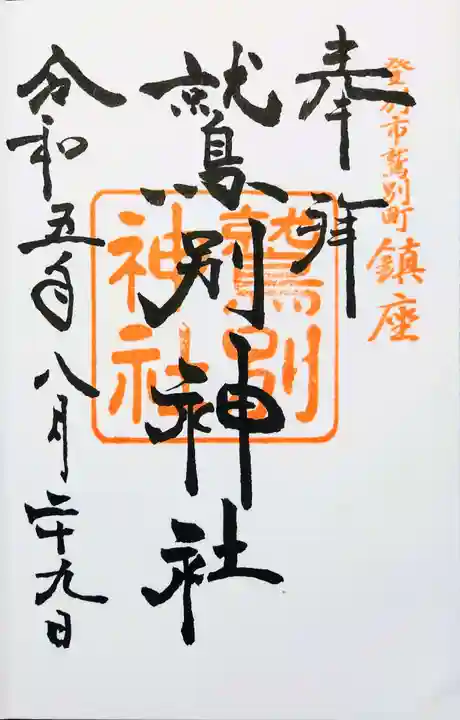 登別市鷲別町 鎮座
奉拝
鷲別神社
鷲別
神社
令和五年八月二十九日